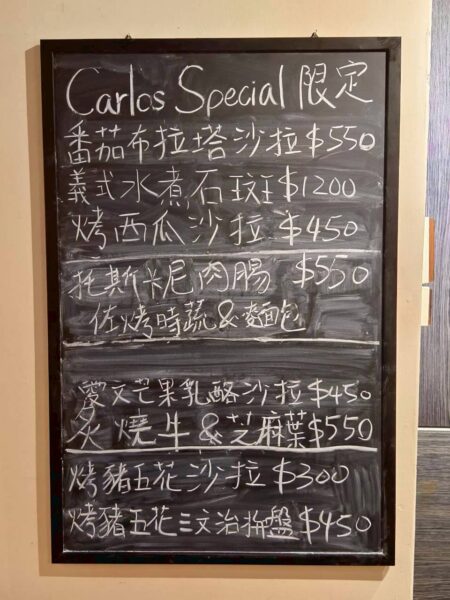 Carlos Special 限定
番茄布拉塔沙拉 $550
義式水煮石斑 $1200
烤西瓜沙拉 $450
托斯卡尼肉腸 $550
佐烤時蔬&麵包
愛文芒果乳酪沙拉 $450
炙燒牛&芝麻葉 $550
烤豬五花沙拉 $300
烤豬五花三文治拚盤 $450